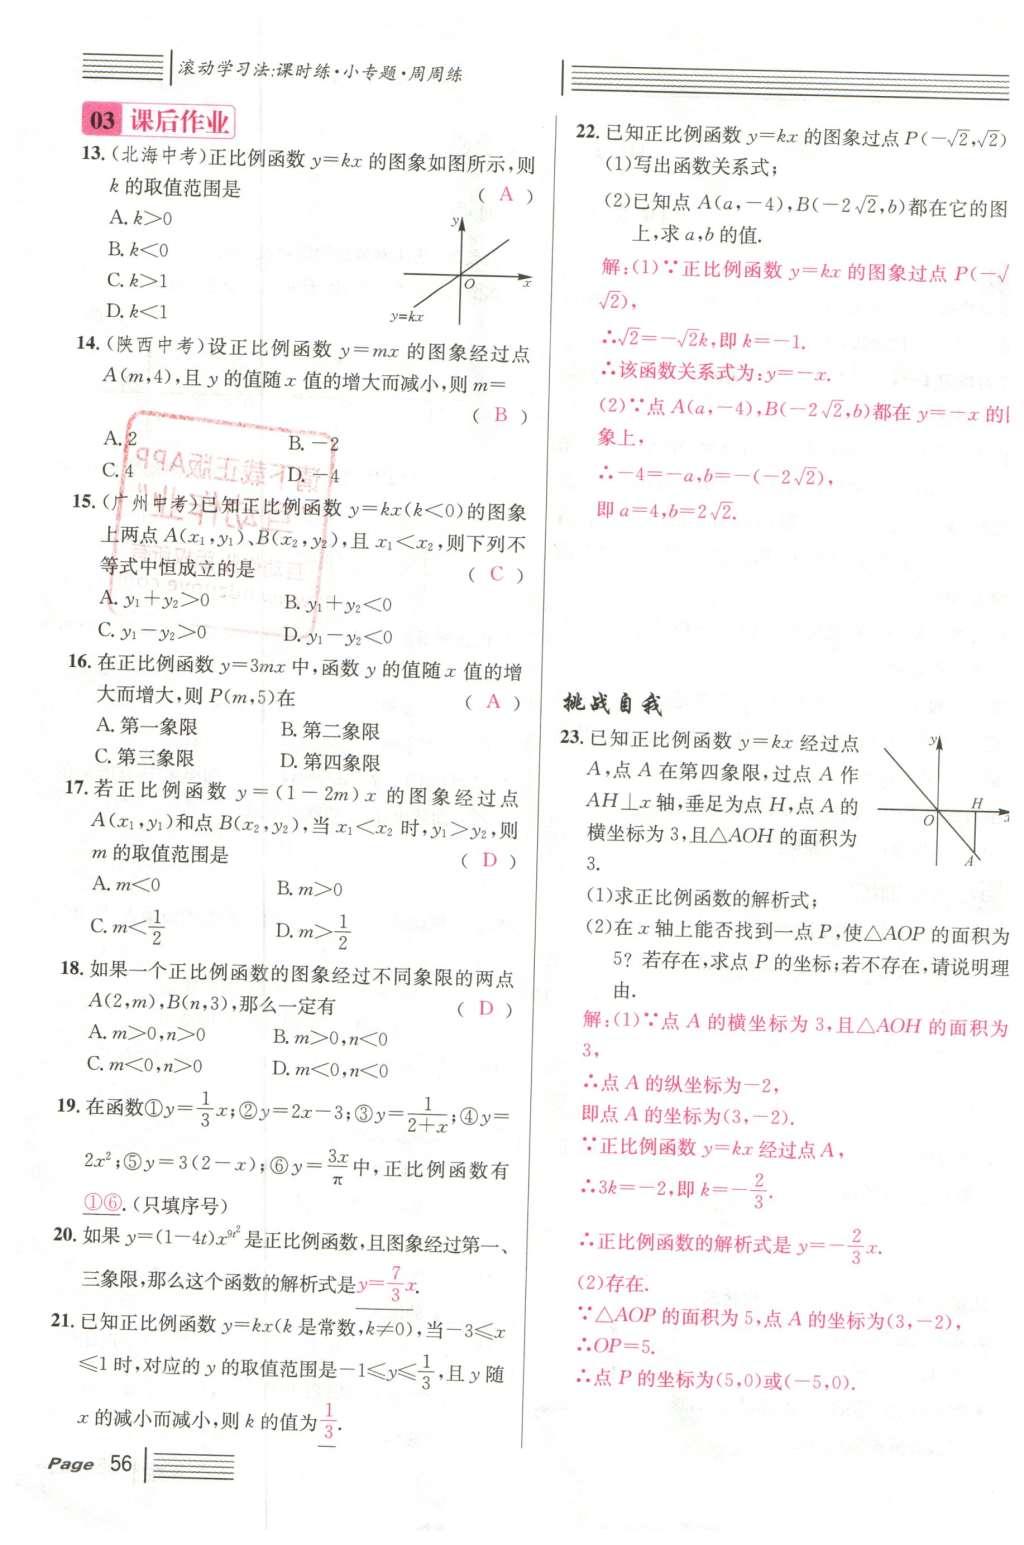 滚动学习法:课时练·小专题·周周练
03 课后作业
13.(北海中考)正比例函数 y=kx 的图象如图所示,则
k 的取值范围是 ( A )
A. k>0
B. k<0
C. k>1
D. k<1
y
O
x
y=kx
14.(陕西中考)设正比例函数 y=mx 的图象经过点
A(m,4),且 y 的值随 x 值的增大而减小,则 m=
( B )
A. 2 B. −2
C. 4 D. −4
15.(广州中考)已知正比例函数 y=kx(k<0)的图象
上两点 A(x₁,y₁)、B(x₂,y₂),且 x₁<x₂,则下列不
等式中恒成立的是 ( C )
A. y₁+y₂>0 B. y₁+y₂<0
C. y₁−y₂>0 D. y₁−y₂<0
16. 在正比例函数 y=3mx 中,函数 y 的值随 x 值的增
大而增大,则 P(m,5)在 ( A )
A. 第一象限 B. 第二象限
C. 第三象限 D. 第四象限
17. 若正比例函数 y=(1−2m)x 的图象经过点
A(x₁,y₁)和点 B(x₂,y₂),当 x₁<x₂ 时,y₁>y₂,则
m 的取值范围是 ( D )
A. m<0 B. m>0
C. m<1/2 D. m>1/2
18. 如果一个正比例函数的图象经过不同象限的两点
A(2,m),B(n,3),那么一定有 ( D )
A. m>0,n>0 B. m>0,n<0
C. m<0,n>0 D. m<0,n<0
19. 在函数①y=1/3x;②y=2x−3;③y=1/(2+x);④y=
2x²;⑤y=3(2−x);⑥y=3x/π中,正比例函数有
①⑥.(只填序号)
20. 如果 y=(1−4t)x^(9t²) 是正比例函数,且图象经过第一、
三象限,那么这个函数的解析式是y=7/3x.
21. 已知正比例函数 y=kx(k 是常数,k≠0),当−3≤x
≤1 时,对应的 y 的取值范围是−1≤y≤1/3,且 y 随
x 的减小而减小,则 k 的值为1/3.
Page 56
22. 已知正比例函数 y=kx 的图象过点 P(−√2,√2)
(1)写出函数关系式;
(2)已知点 A(a,−4),B(−2√2,b)都在它的图
上,求 a,b 的值.
解:(1)∵正比例函数 y=kx 的图象过点 P(−√
√2),
∴√2=−√2k,即 k=−1.
∴该函数关系式为:y=−x.
(2)∵点 A(a,−4),B(−2√2,b)都在 y=−x 的
象上,
∴−4=−a,b=−(−2√2),
即 a=4,b=2√2.
挑战自我
23. 已知正比例函数 y=kx 经过点
A,点 A 在第四象限,过点 A 作
AH⊥x 轴,垂足为点 H,点 A 的
横坐标为 3,且△AOH 的面积为
3.
y
H
O
A
(1)求正比例函数的解析式;
(2)在 x 轴上能否找到一点 P,使△AOP 的面积为
5? 若存在,求点 P 的坐标;若不存在,请说明理
由.
解:(1)∵点 A 的横坐标为 3,且△AOH 的面积为
3,
∴点 A 的纵坐标为−2,
即点 A 的坐标为(3,−2).
∵正比例函数 y=kx 经过点 A,
∴3k=−2,即 k=−2/3.
∴正比例函数的解析式是 y=−2/3x.
(2)存在.
∵△AOP 的面积为 5,点 A 的坐标为(3,−2),
∴OP=5.
∴点 P 的坐标为(5,0)或(−5,0).